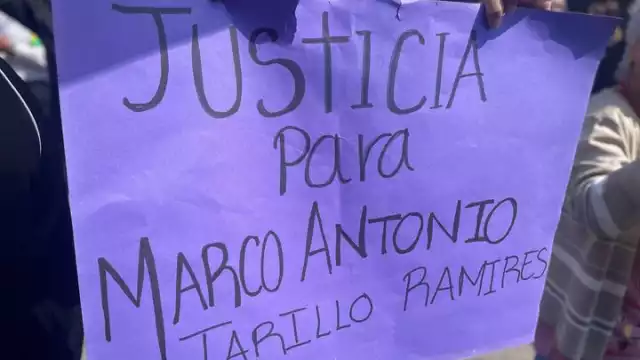 JUSTICIA
Para
MARCO ANTONIO
TARILLO RAMIRES